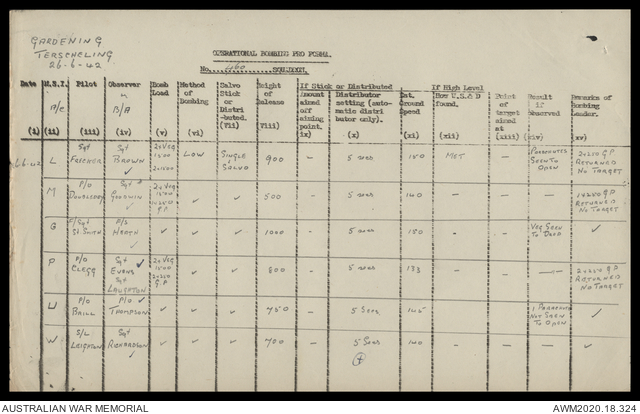 GARDENING
TERSCHELING
26-6-42
OPERATIONAL BOMBING PRO FORMA.
No. 460 SQUADRON.
Date
(i)
U.S.I.
A/C
(ii)
Pilot
(iii)
Observer
or
B/A
(iv)
Bomb
Load
(v)
Method
of
Bombing
(vi)
Salvo
Stick
or
Distri
-buted.
(vii)
Height
of
Release
(viii)
If Stick or Distributed
Amount
aimed
off
aiming
point.
ix)
Distributor
setting (auto-
matic distri
butor only).
(x)
Est.
Ground
Speed
(xi)
If High Level
How U.S.& D
found.
(xii)
Point
of
target
aimed
at
(xiii)
Result
if
observed
(xiv)
Remarks of
Bombing
Leader.
xv)
L Sgt FARCHER Sgt BROWN ✓ LOW SINGLE SALVO 900 - 5 secs 150 MET - PARACHUTES SEEN TO OPEN 2x250 G.P RETURNED NO TARGET
M P/O Sgt GOODWIN ✓ 2x VEG 1500 G.P ✓ ✓ 500 - 5 secs 140 - - - G.P RETURNED NO TARGET
G F/Sgt F/S HEATH ✓ ✓ ✓ ✓ 1000 - 5 secs 150 - - VEG SEEN TO DROP ✓
P P/O CLEGG Sgt EVANS ✓ Sgt LAUGHTON 2x VEG 1500 2x250 G.P ✓ ✓ 800 - 5 secs 135 - - - 2x250 G.P RETURNED NO TARGET
U P/O BRILL P/O THOMPSON ✓ ✓ ✓ ✓ 750 - 5 Secs 145 - - NOT SEEN TO OPEN ✓
W S/L LEIGHTON Sgt RICHARDSON ✓ ✓ ✓ ✓ 700 - 5 Secs 140 - - - ✓
AUSTRALIAN WAR MEMORIAL
AWM2020.18.324